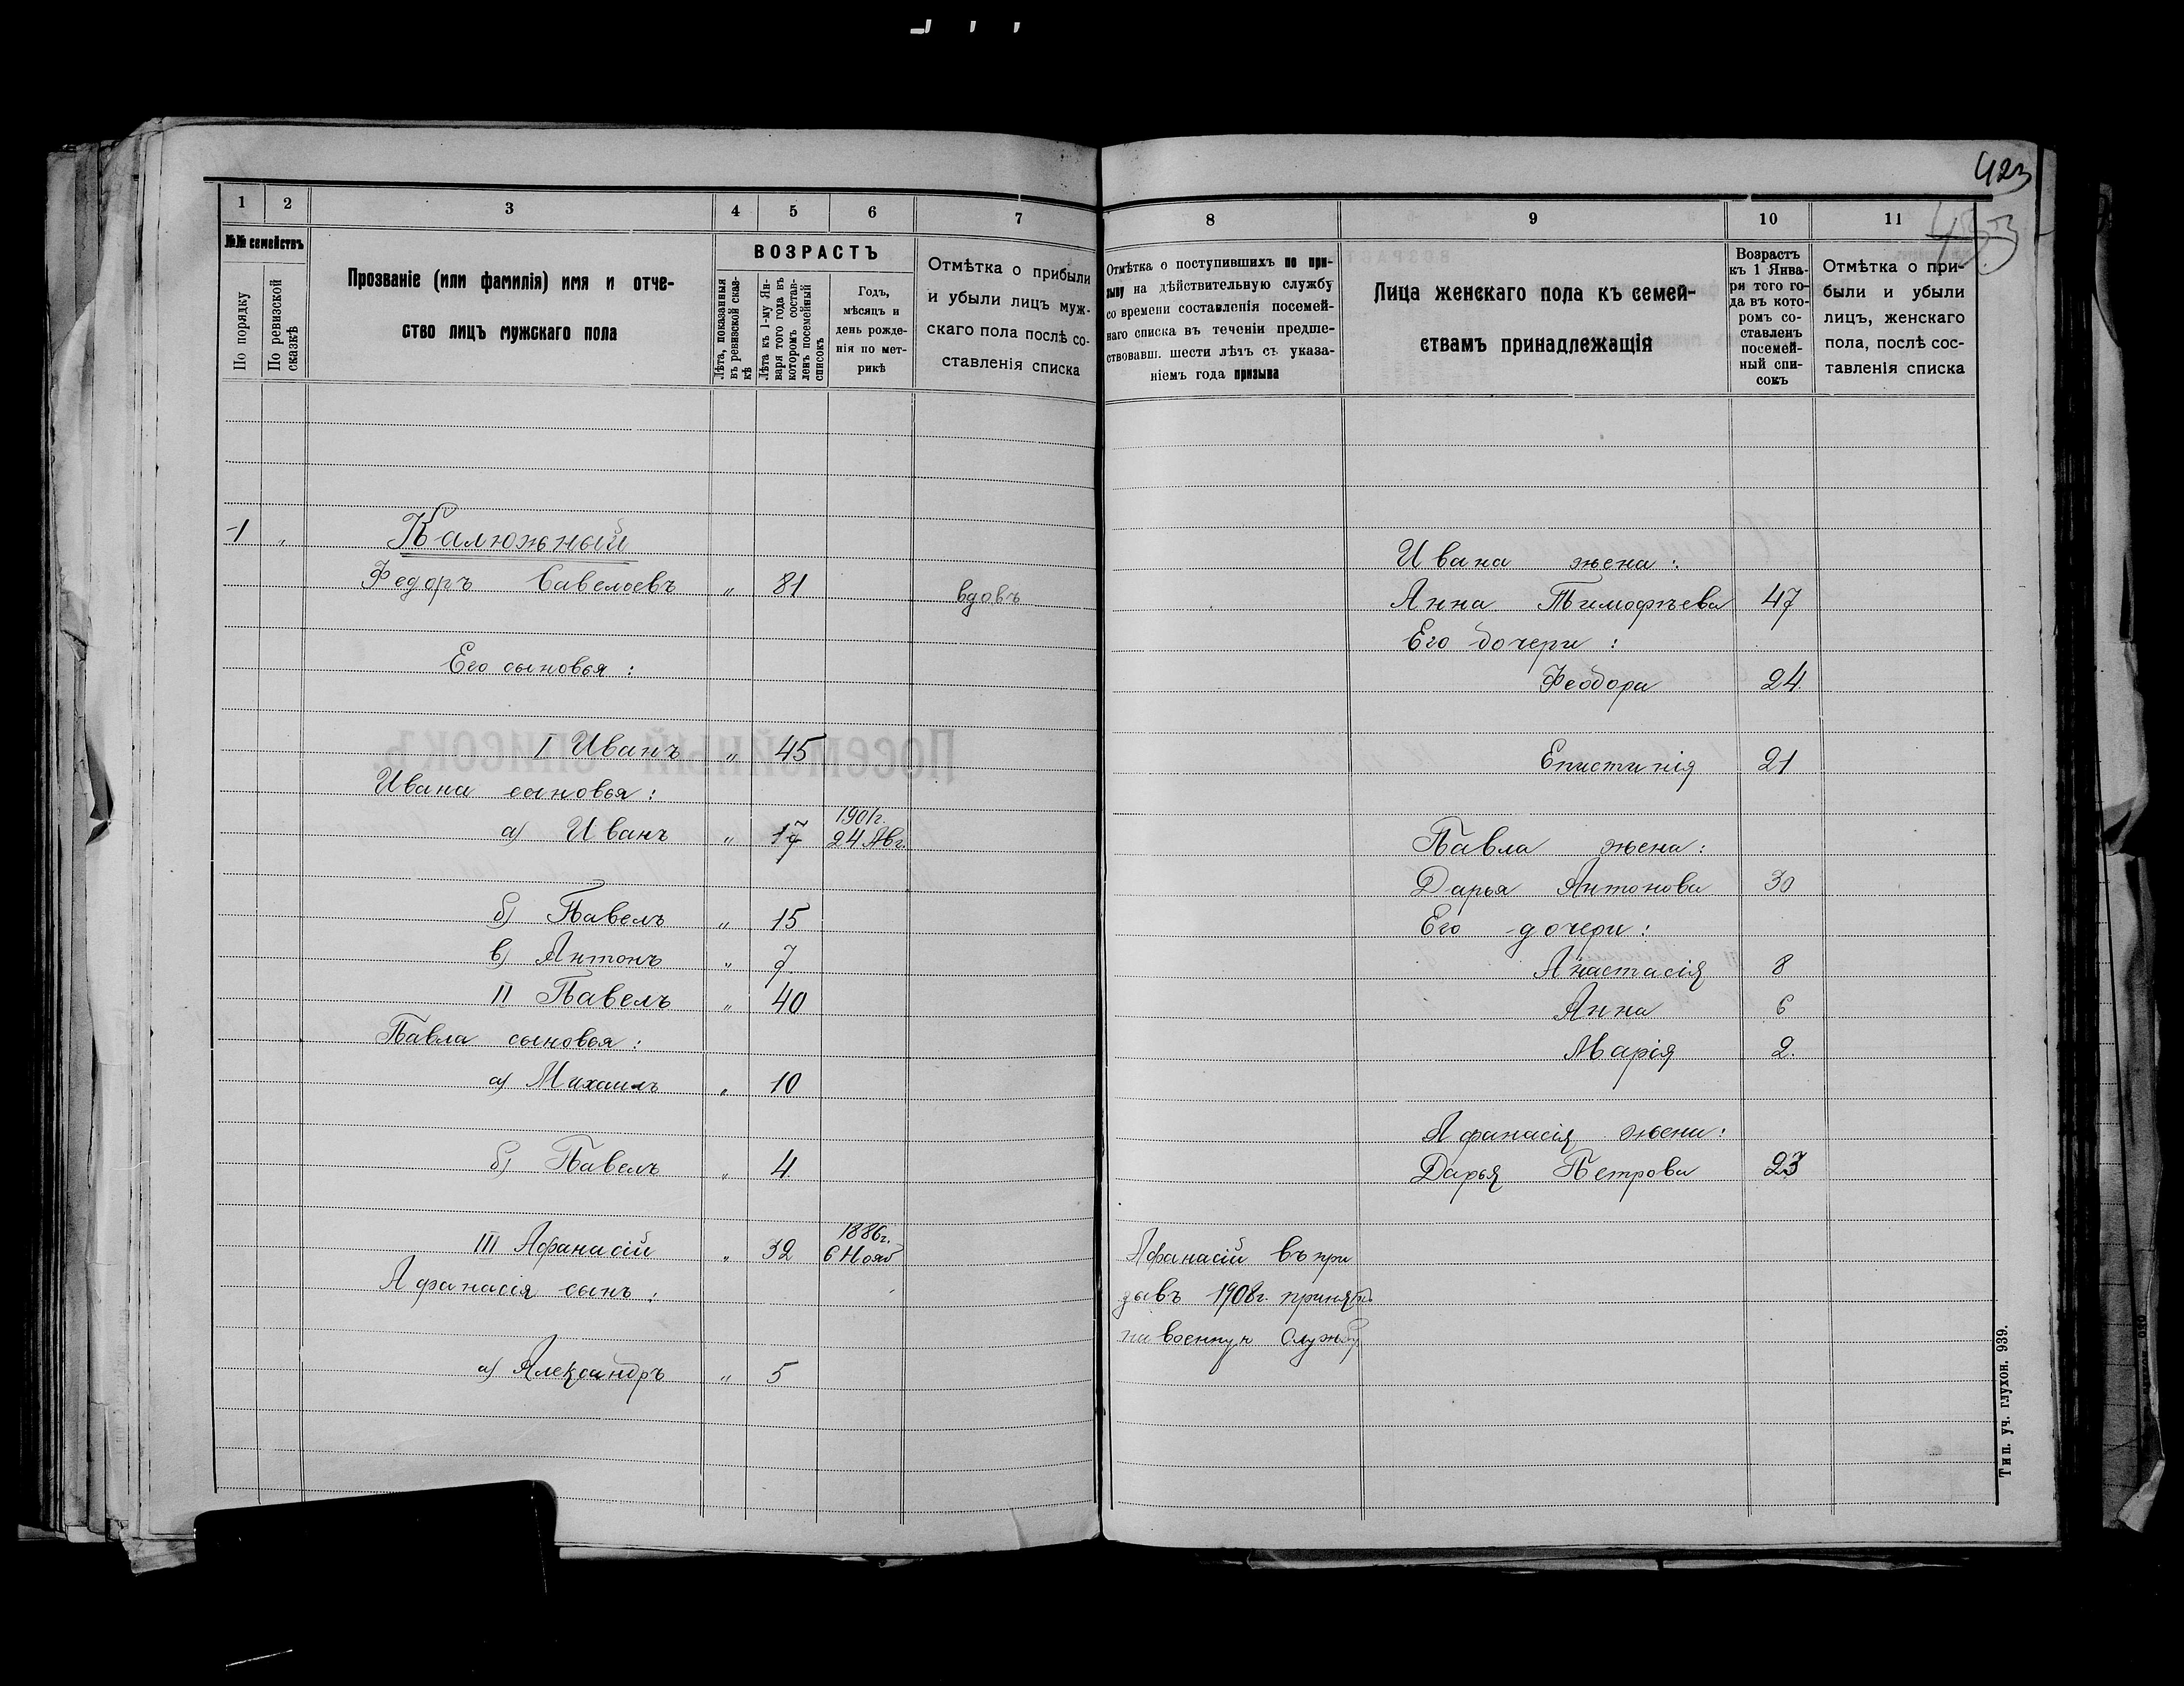 423
1 2 3 4 5 6 7
№№ семействъ
По порядку
По ревизской сказкѣ
Прозваніе (или фамилія) имя и отче-
ство лицъ мужскаго пола
ВОЗРАСТЪ
Лѣта, показанныя
въ ревизской сказ-
кѣ
Лѣта къ 1-му Ян-
варя того года въ
которомъ состав-
ленъ посемейный
списокъ
Годъ,
мѣсяцъ и
день рожде-
нія по мет-
рикѣ
Отмѣтка о прибыли
и убыли лицъ муж-
скаго пола послѣ со-
ставленія списка
1 „ Калюжный
Федоръ Савельевъ „ 81 вдовъ
Его сыновья:
I Иванъ „ 45
Ивана сыновья:
1901г.
а) Иванъ „ 17 24 Авг.
б) Павелъ „ 15
в) Антонъ „ 7
II Павелъ „ 40
Павла сыновья:
а) Михаилъ „ 10
б) Павелъ „ 4
1886г.
III Афанасій „ 32 6 Нояб
Афанасія сынъ:
а) Александръ „ 5
8 9 10 11
Отмѣтка о поступившихъ по при-
зыву на дѣйствительную службу
со времени составленія посемей-
наго списка въ теченіи предше-
ствовавш. шести лѣтъ съ указа-
ніемъ года призыва
Лица женскаго пола къ семей-
ствамъ принадлежащія
Возрастъ
къ 1 Янва-
ря того го-
да въ кото-
ромъ со-
ставленъ
посемей-
ный спи-
сокъ
Отмѣтка о при-
были и убыли
лицъ, женскаго
пола, послѣ сос-
тавленія списка
Ивана жена:
Анна Тимофѣева 47
Его дочери:
Феодора 24.
Епистинія 21
Павла жена:
Дарья Антонова 30
Его дочери:
Анастасія 8
Анна 6
Марія 2.
Афанасія жена:
Дарья Петрова 23
Афанасій въ при
зывъ 1908г. принятъ
на военную службу
Тип. уч. глухон. 939.